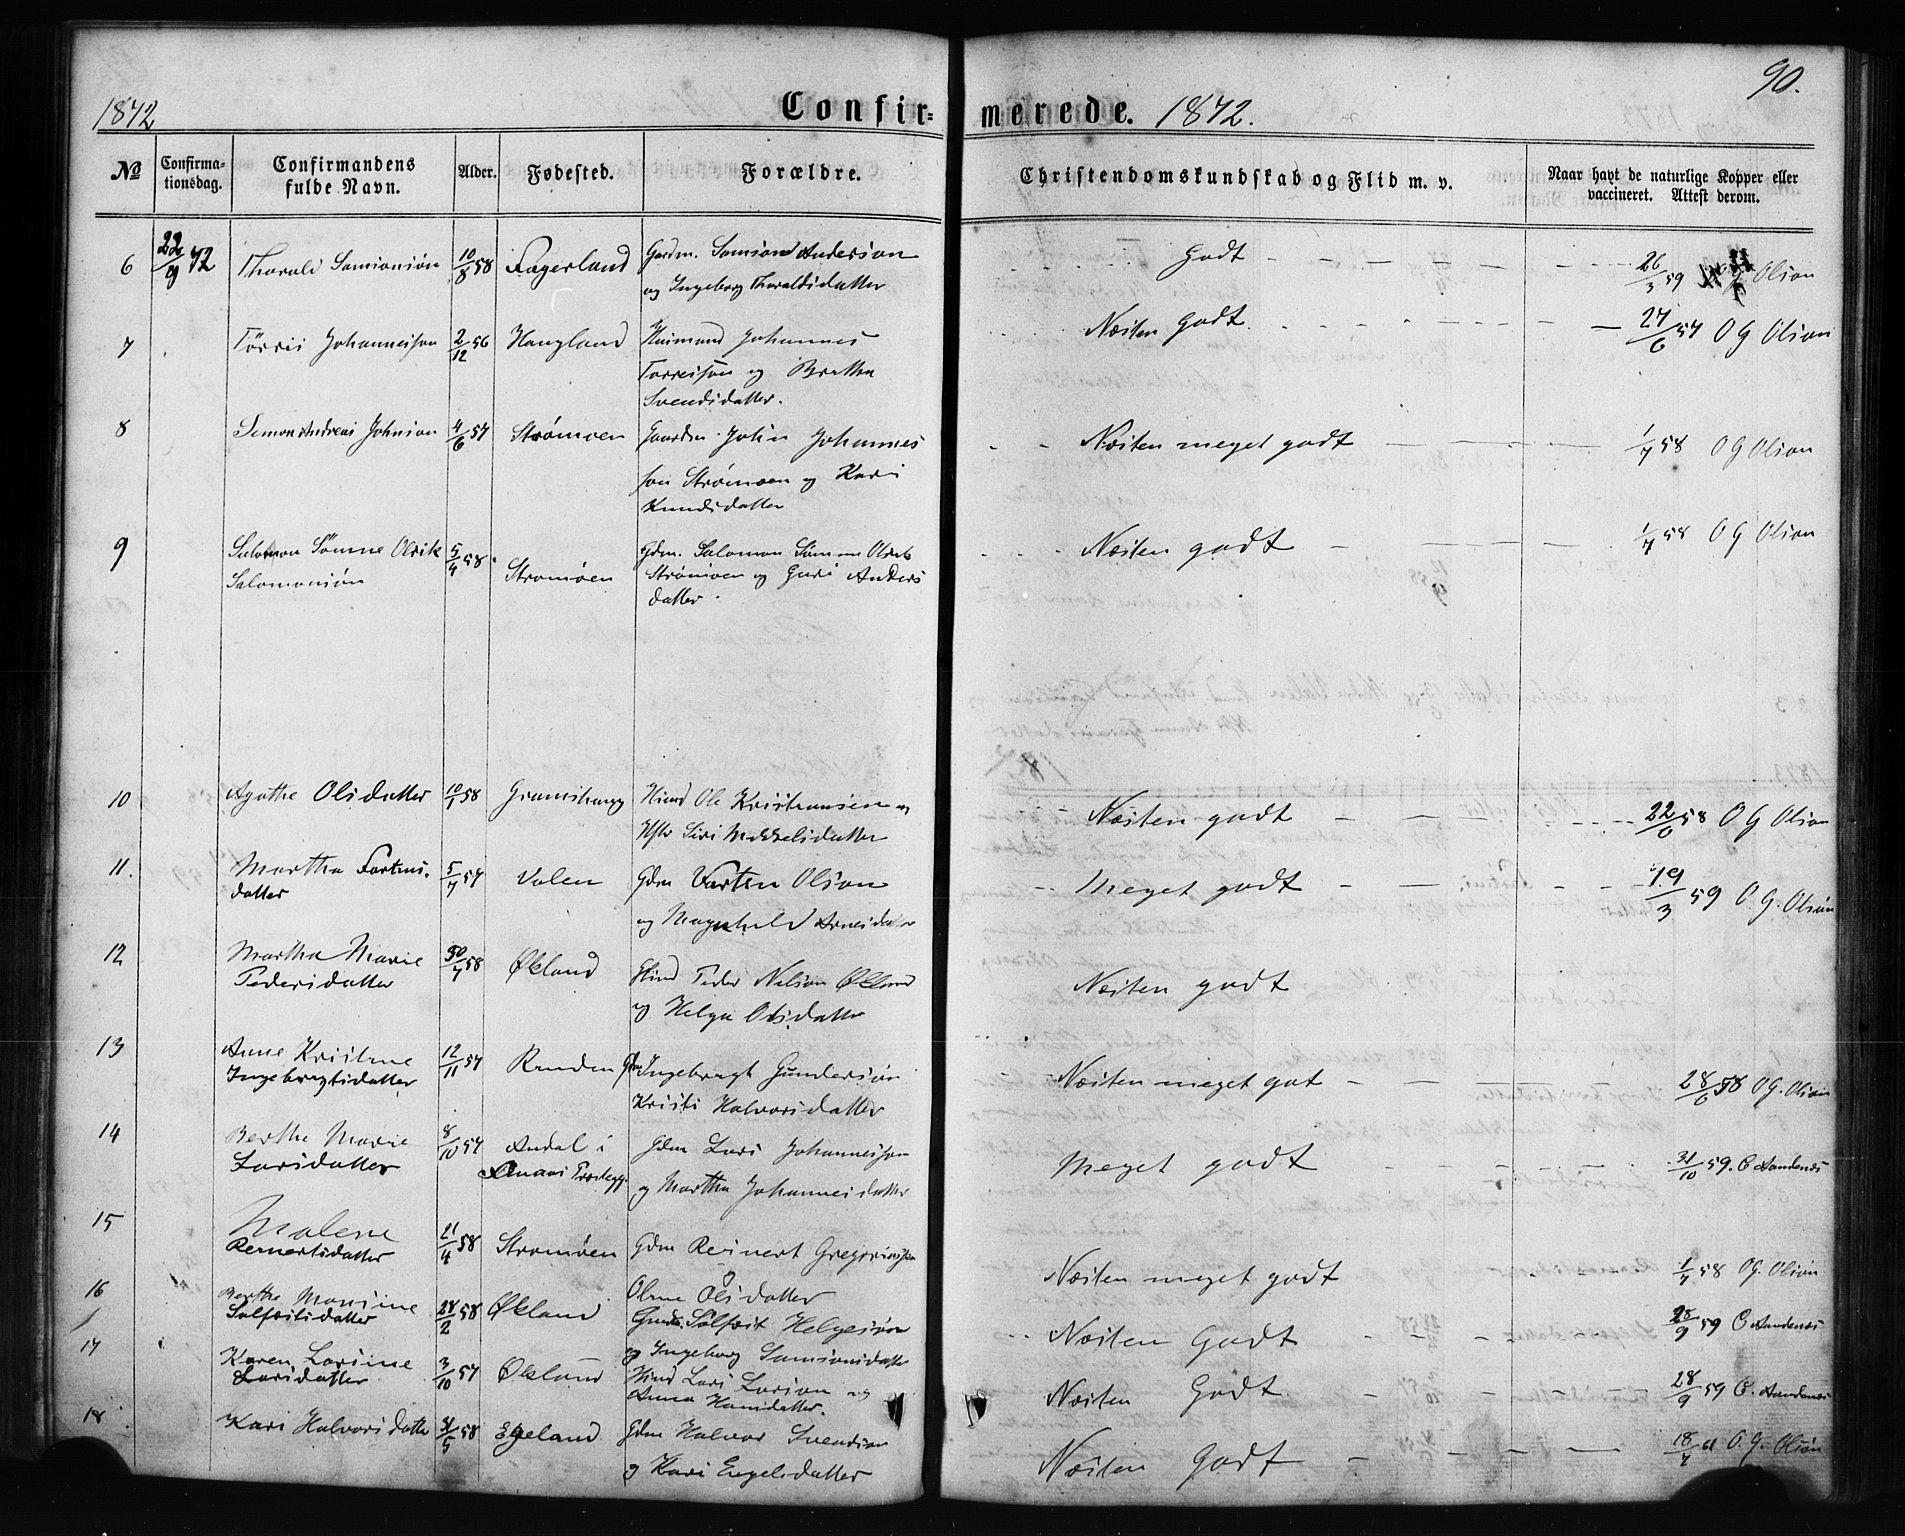 1872
Confir-
merede. 1872.
90.
No
Confirma-
tionsdag.
Confirmandens
fulde Navn.
Alder.
Fødested.
Forældre.
Christendomskundskab og Flid m. v.
Naar havt de naturlige Kopper eller
vaccineret. Attest derom.
6 22/9 72 Thorald Samsonsøn 10/8 58 Fagerland Gaardm. Samson Anderson
og Ingeborg Thoraldsdatter
Godt 26/3 59 O G Olson
7 Törris Johannesson 2/12 56 Haugland Huusmand Johannes
Torresson og Brethe
Svendsdatter.
Næsten Godt 27/6 57 O G Olson
8 Simon Andreas Johnson 4/6 57 Strømøen Gaardm John Johannes
son Strømøen og Kari
Knudsdatter
Næsten meget godt 1/7 58 O G Olson
9 Salomon Sømme Olrik
Salomonsøn 5/4 58 Strømøen
Gdm. Salomon Sømme Olrik
Strømøen og Guri Anders
datter.
Næsten godt 1/7 58 O G Olson
10 Agathe Olsdatter 10/1 58 Ole Kristiansen og
Siri Mikkelsdatter
Næsten godt 22/6 58 O G Olson
11. Martha Fartens
datter 5/7 57 Valen Gdm Farten Olson
og Magnhild Arnesdatter
Meget godt 19/3 59 O. G. Olson
12 Martha Marie
Pedersdatter 30/7 58 Økland Peder Nelson Økland
og Helga Olsdatter
Næsten godt
13 Anne Kristine
Ingebregtsdatter 12/11 57 Gdm Ingebregt Gundersøn
Kristi Halvorsdatter
Næsten meget got 28/6 58 O G. Olson
14 Berthe Marie
Larsdatter 8/10 57 Andal i
Gdm Lars Johannesson
og Martha Johannesdatter
Meget godt 31/10 59. C Aandenæs
15 Malene
Reinertsdatter 21/4 58 Strømøen Gdm Reinert Gregoriussen
Oline Olsdatter
Næsten meget godt 1/7 58 O G. Olson
16 Berthe Monsine
Solfestsdatter 28/2 58 Økland Solfest Helgesøn
og Ingeborg Samsonsdatter
Næsten Godt 28/9 59 C Aandenæs
17 Karen Larsine
Larsdatter 3/10 57 Økland Hmd Lars Larson og
Anna Hansdatter.
Næsten Godt 28/9 59 C. Aandenæs
18 Kari Halvorsdatter 31/5 58 Egeland Gdm Halvor Svendson
og Kari Engelsdatter
Næsten Godt 18/7 61 O. G. Olson